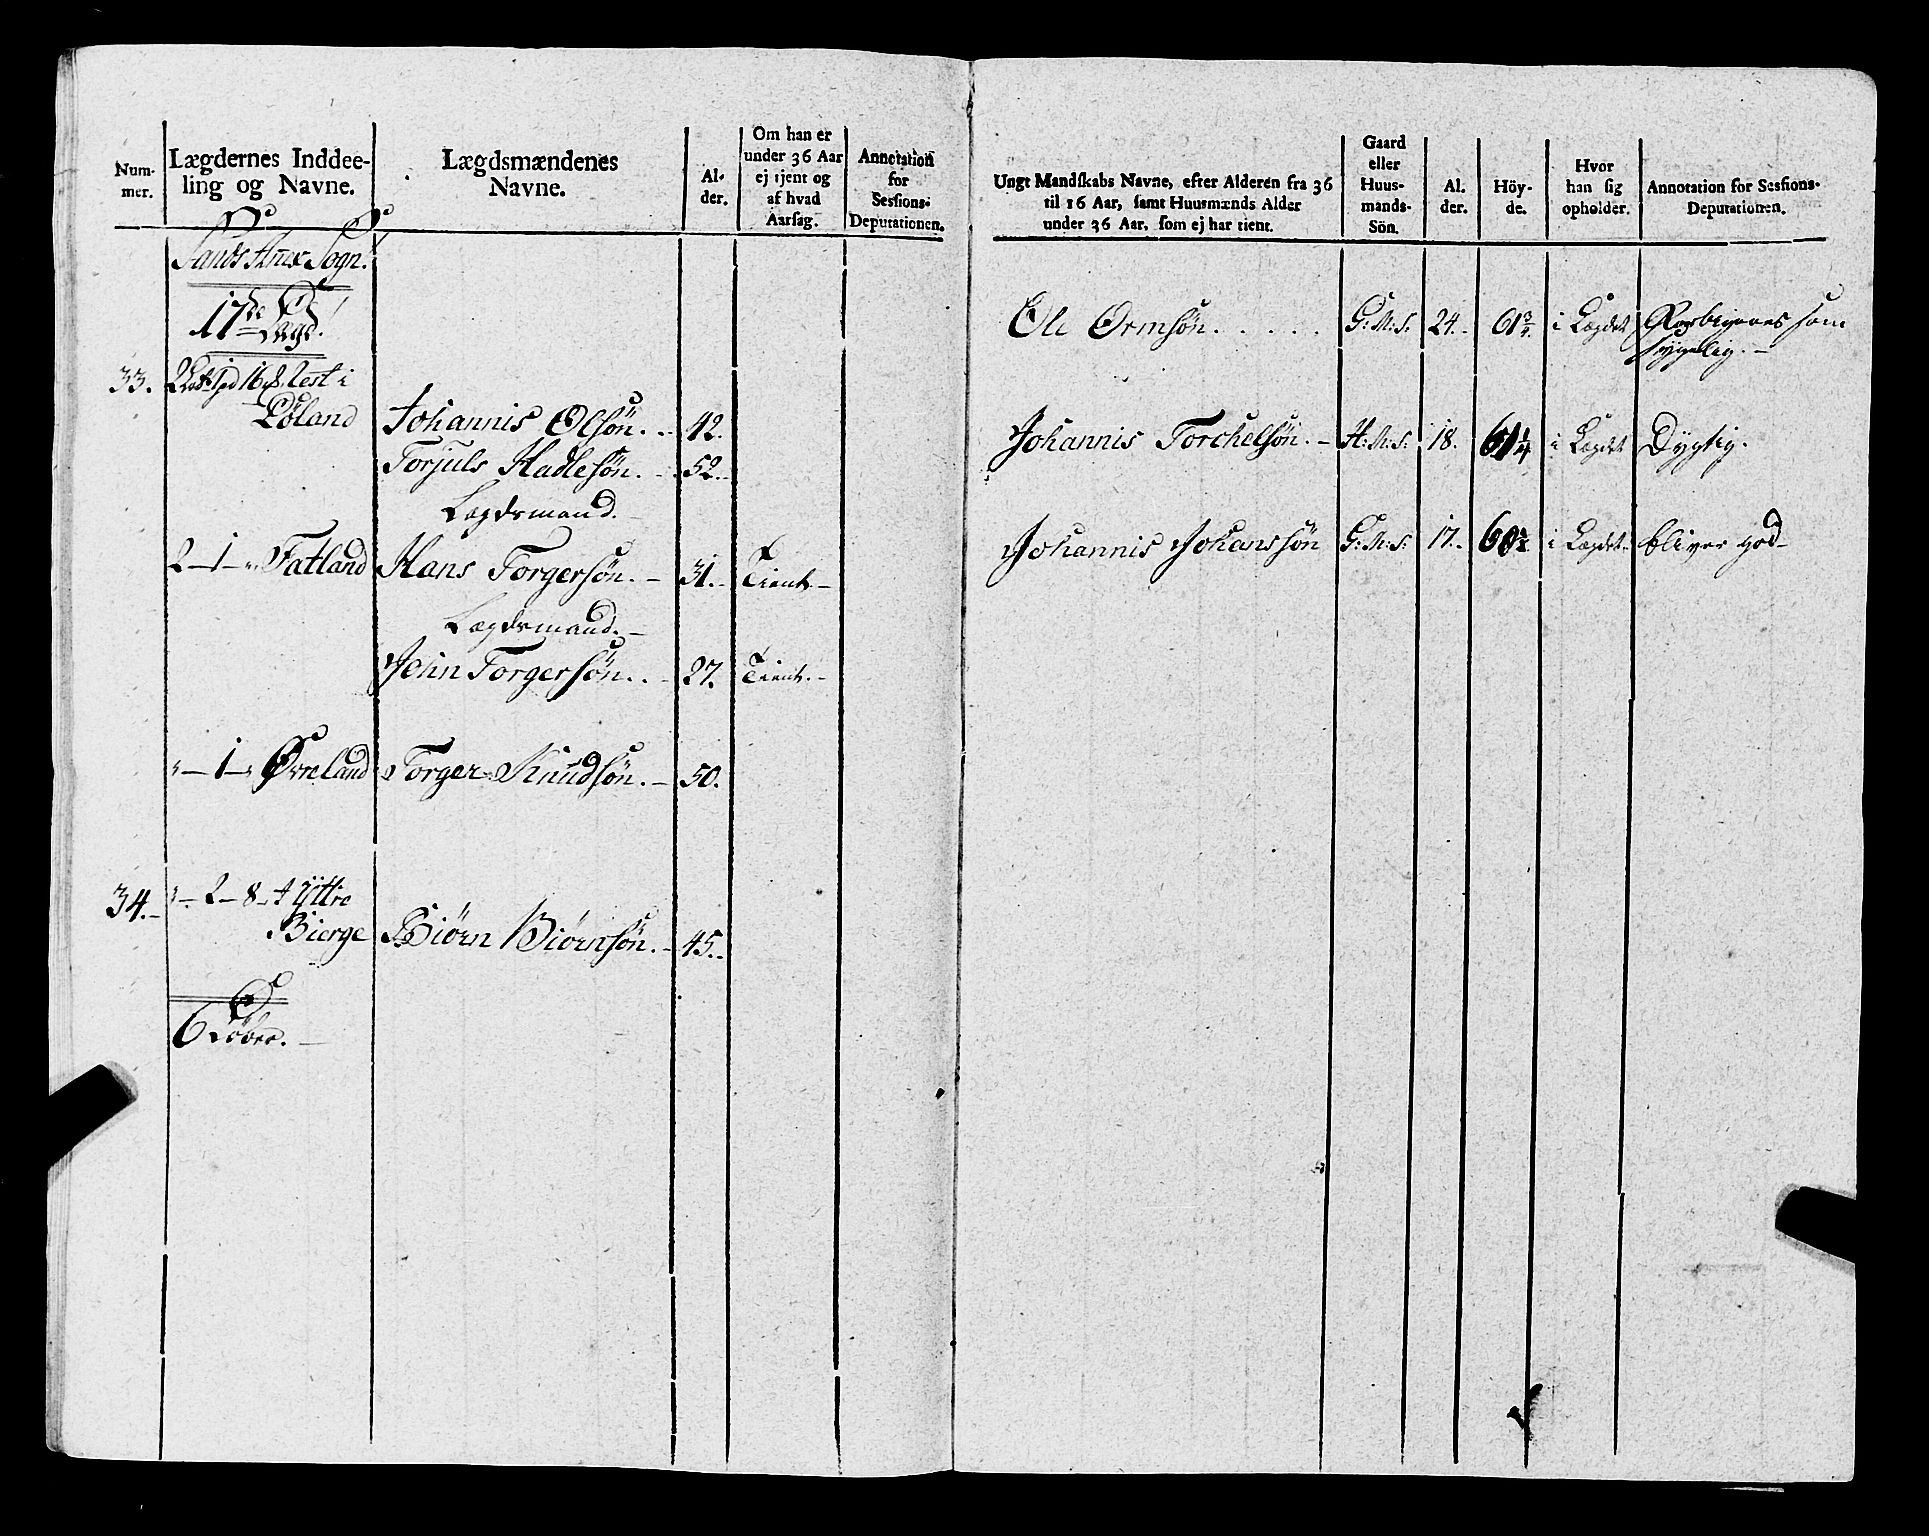 Num-
mer.
Lægdernes Inddee-
ling og Navne.
Lægdsmændenes
Navne.
Al-
der.
Om han er
under 36 Aar
ej tjent og
af hvad
Aarsag.
Annotation
for
Sessions-
Deputationen.
Sands Anex Sogn.
17de Lægd.
33. 1 pd 16 Rest i
Løland Johannis Olsön. 42.
Torjuls Hadlesön. 52.
Lægdsmand.
2 — 1 — „ Fatland Hans Torgersön. — 31. Tient. —
Lægdsmand. —
John Torgersön. — 27. Tient. —
„ — 1 — „ Øvreland Torger Knudsön. — 50.
34. „ — 2 — 8 Yttre
Bierge Biörn Biörnsön. — 45.
6 Löber. —
Ungt Mandskabs Navne, efter Alderen fra 36
til 16 Aar, samt Huusmænds Alder
under 36 Aar, som ej har tient.
Gaard
eller
Huus-
mands-
Sön.
Al-
der.
Höy-
de.
Hvor
han sig
opholder.
Annotation for Sessions-
Deputationen.
Ole Ormsön. . . . . . G: M: S: 24. 61 3/4 i Lægdet Forbigaaes som
sygelig. —
Johannis Torchelsön. — H: M: S: 18. 61 1/4 i Lægdet Dygtig.
Johannis Johanssön G: M: S: 17. 60 i Lægdet bliver god